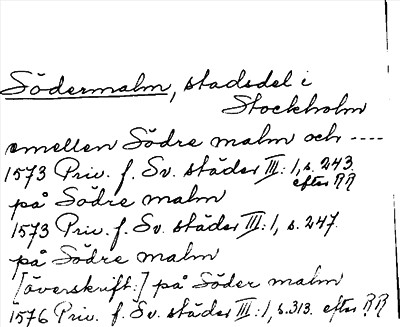 Södermalm, stadsdel i
Stockholm
emellen Södre malm och ----
1573 Priv. f. Sv. städer III:1, s. 243
efter RR
på Södre malm
1573 Priv. f. Sv. städer III:1, s. 247.
på Södre malm
[överskrift:] på Söder malm
1576 Priv. f. Sv. städer III:1, s. 313. efter RR